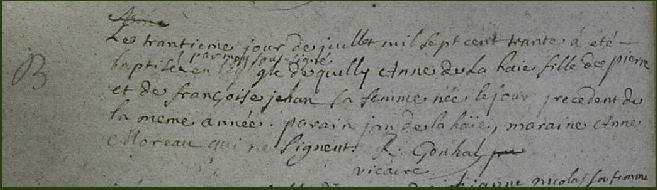 Anne
B Le trantieme jour de juillet mil sept cent trante a eté
par moy sous signé
baptisée en l'eglise de quilly Anne de La haie fille de pierre
et de françoise jehan sa femme née le jour precedent de
la meme année. parain jan de la haie, maraine Anne
Moreau qui ne signent. Gouhal
vicaire
nicolas sa femme